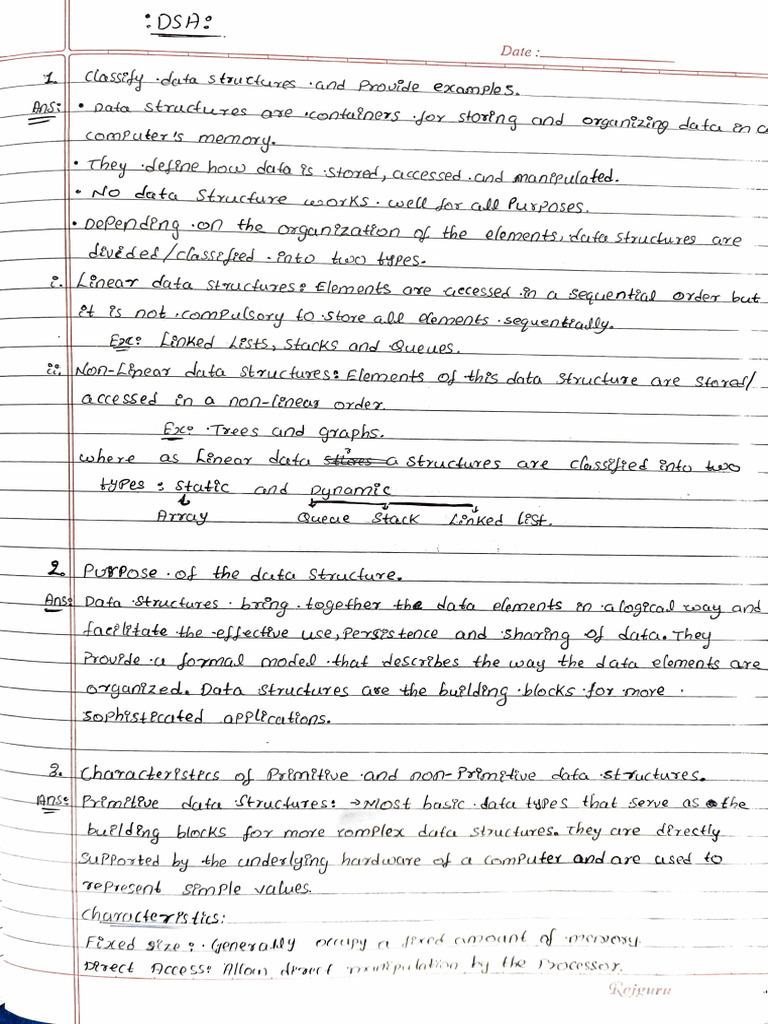 :DSA:
Date :
1. Classify data structures and provide examples.
Ans: • Data structures are containers for storing and organizing data in a
computer's memory.
• They define how data is stored, accessed and manipulated.
• No data structure works well for all purposes.
• Depending on the organization of the elements, data structures are
divided/classified into two types.
i. Linear data structures: Elements are accessed in a sequential order but
it is not compulsory to store all elements sequentially.
Ex: Linked Lists, Stacks and Queues.
ii. Non-Linear data structures: Elements of this data structure are stored/
accessed in a non-linear order.
Ex: Trees and graphs.
where as Linear data a structures are classified into two
types: static and Dynamic
Array Queue Stack Linked list.
2. Purpose of the data structure.
Ans: Data structures bring together the data elements in a logical way and
facilitate the effective use, persistence and sharing of data. They
provide a formal model that describes the way the data elements are
organized. Data structures are the building blocks for more
sophisticated applications.
3. Characteristics of Primitive and non-Primitive data structures.
Ans: Primitive data structures: → Most basic data types that serve as the
building blocks for more complex data structures. They are directly
supported by the underlying hardware of a computer and are used to
represent simple values.
Characteristics:
Fixed size: Generally occupy a fixed amount of memory.
Direct Access: Allow direct manipulation by the Processor.
Rejguru